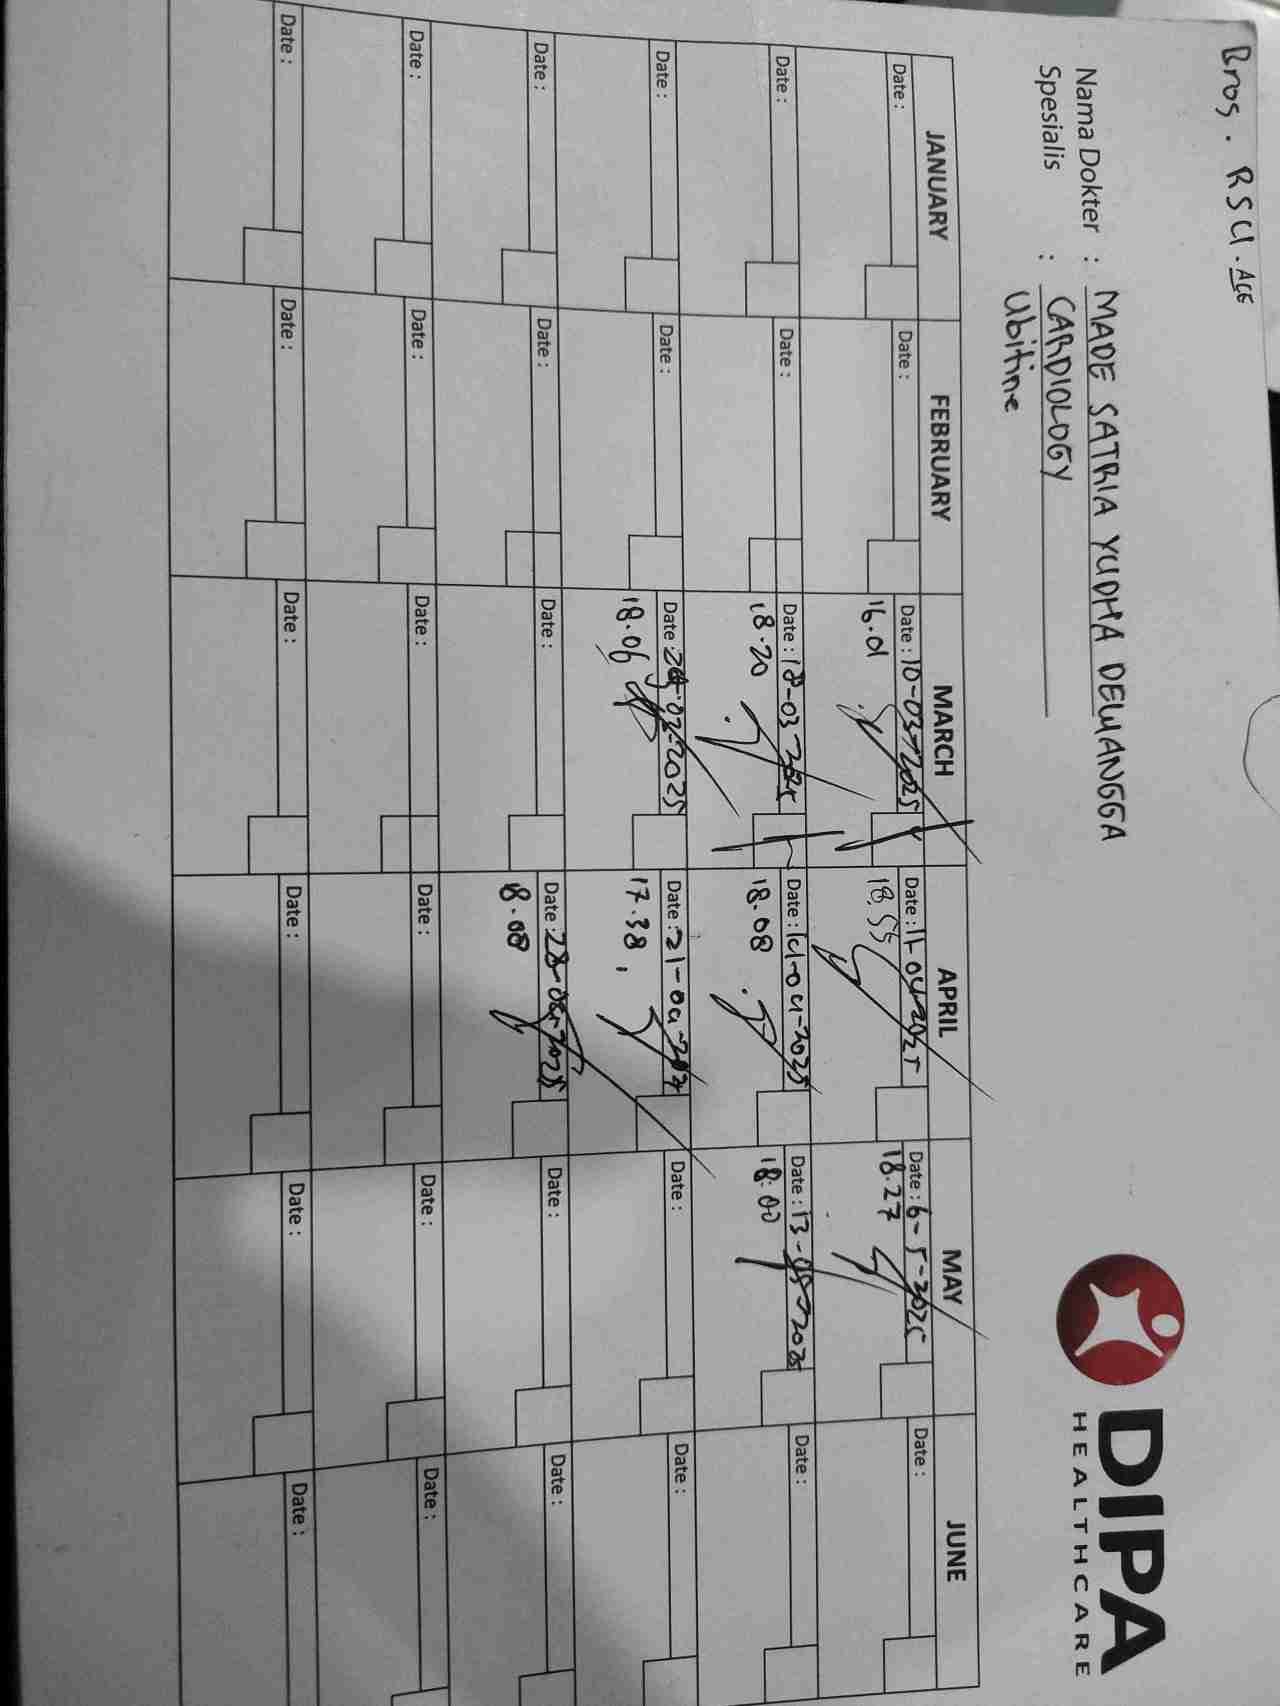 Bros. RSU. ACG
Nama Dokter : MADE SATRIA YUDHA DEWANGGA
Spesialis : CARDIOLOGY
Ubitine
DIPA
HEALTHCARE
JANUARY FEBRUARY MARCH APRIL MAY JUNE
Date : Date : Date : 10-03-2025 Date : 11-04-2025 Date : 6-5-2025 Date :
16.01 18.55 18.27
Date : Date : Date : 18-03-2025 Date : 14-04-2025 Date : 13-05-2025 Date :
18.20 18.08 18.00
Date : Date : Date : 03-2025 Date : 21-04- Date : Date :
18.06 17.38
Date : Date : Date : Date : 28-04-2025 Date : Date :
8.08
Date : Date : Date : Date : Date : Date :
Date : Date : Date : Date : Date : Date :